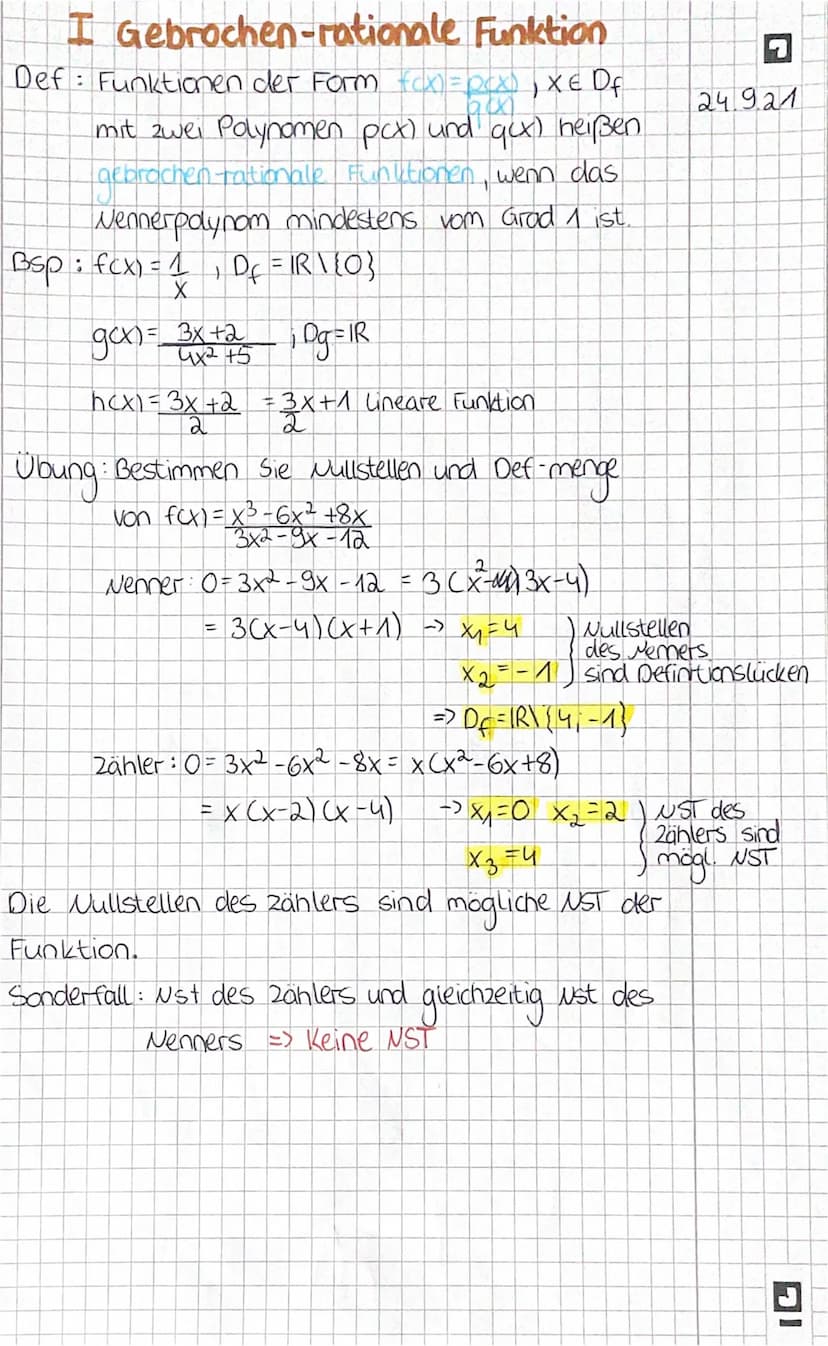 I Gebrochen-rationale Funktion
Def : Funktionen der Form f(x) = p(x)/q(x) , x ∈ Df
24.9.21
mit zwei Polynomen p(x) und q(x) heißen
gebrochen-rationale Funktionen, wenn das
Nennerpolynom mindestens vom Grad 1 ist.
Bsp : f(x) = 1/x , Df = IR \ {0}
g(x) = (3x+2)/(4x²+5) ; Dg = IR
h(x) = (3x+2)/2 = 3/2 x+1 Lineare Funktion
Übung: Bestimmen Sie Nullstellen und Def-menge
von f(x) = (x³-6x²+8x)/(3x²-9x-12)
Nenner : 0 = 3x² - 9x - 12 = 3(x²-3x-4)
= 3(x-4)(x+1) → x₁=4 } Nullstellen
des Nenners
x₂=-1 } sind Definitionslücken
=> Df = IR\{4;-1}
Zähler : 0 = 3x² - 6x² - 8x = x(x²-6x+8)
= x(x-2)(x-4) → x₁=0 x₂=2 } NST des
Zählers sind
x₃=4 } mögl. NST
Die Nullstellen des Zählers sind mögliche NST der
Funktion.
Sonderfall : Nst des Zählers und gleichzeitig Nst des
Nenners => Keine NST